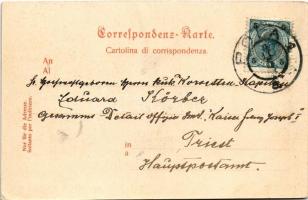 Correspondenz-Karte.
Cartolina di corrispondenza.
An
Al
POLA
Sr. Hochwohlgeboren Herrn k.u.k. Korvetten Kapitän
Eduard Körber
Gesammt Detail Offizier S.M.S. "Kaiser Franz Joseph I"
in
a
Triest
Hauptpostamt.
Nur für die Adresse.
Soltanto per l'indirizzo.